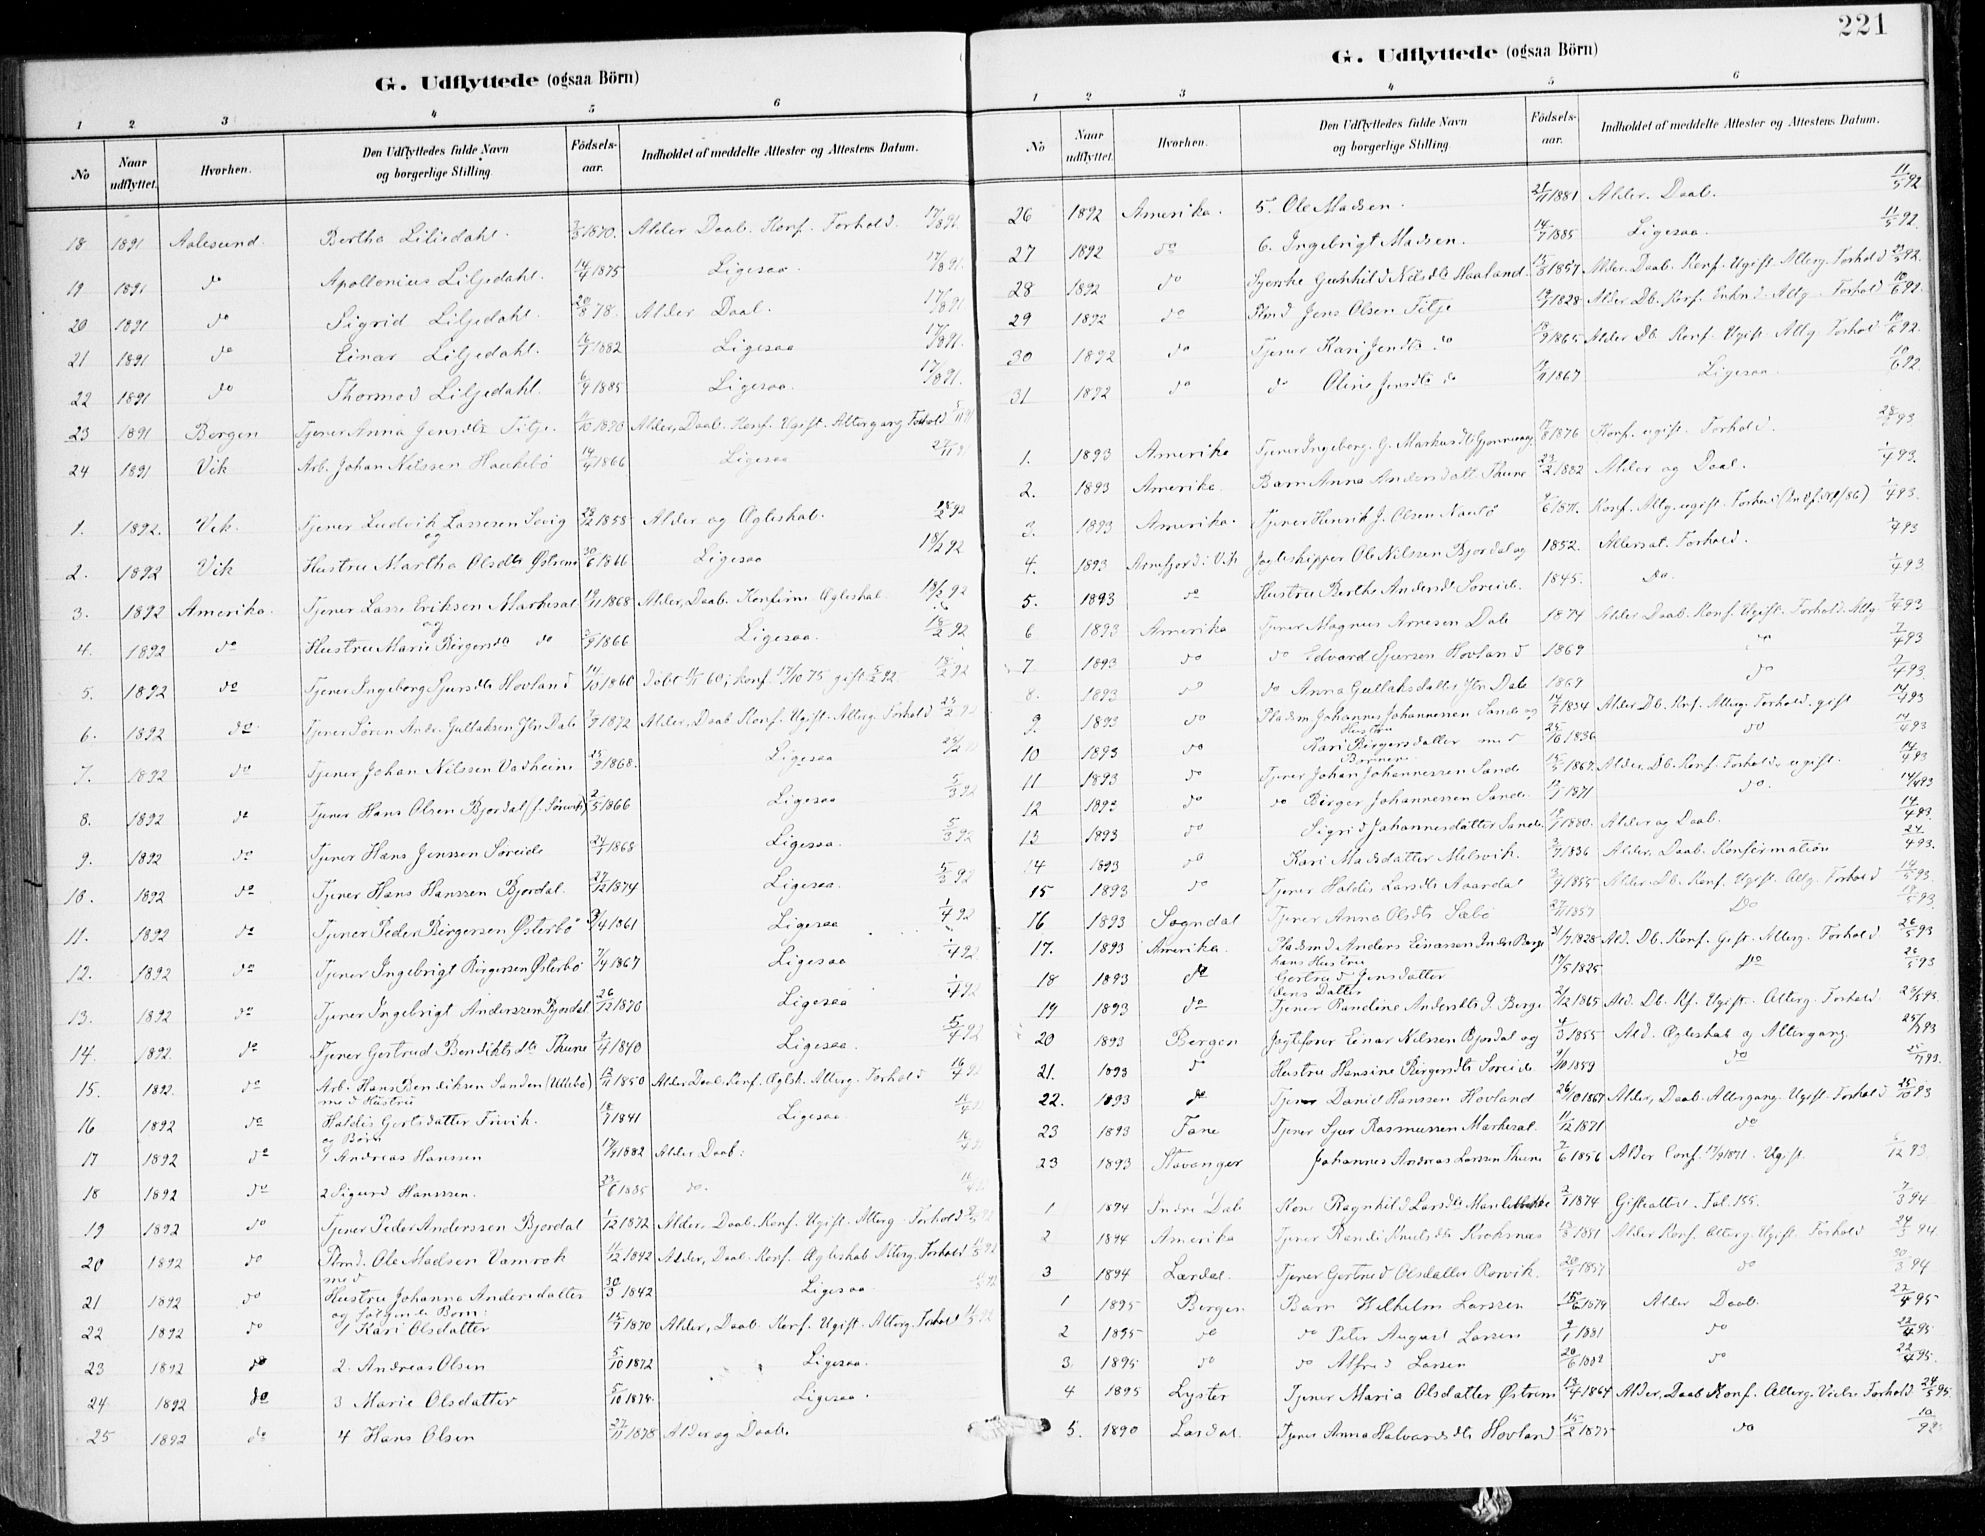 G. Udflyttede (ogsaa Börn)
1 2 3 4 5 6
No Naar udflyttet. Hvorhen. Den Udflyttedes fulde Navn og borgerlige Stilling. Födsels-aar. Indholdet af meddelte Attester og Attestens Datum.
18 1891 Aalesund. Bertha Liliedahl. 1870. Alder Daab. Konf. Forhold. 17/8 91
19 1891 do Apollonius Liljedahl. 14/4 1875 Ligesaa. 17/8 91.
20 1891 do Sigrid Liljedahl. 20/8 78. Alder Daab. 17/8 91
21 1891 do Einar Liljedahl. 16/7 1882 Ligesaa 17/8 91.
22 1891 do Thormod Liljedahl. 6/4 1885 Ligesaa. 17/8 91.
23 1891 Bergen Tjener Anna Jensdtr Titje. 1870 Alder, Daab. Konf. Ugift. Altergang Forhold
24 1891 Vik Arb. Johan Nilssen Haukebö 14/4 1866 Ligesaa
1. 1892. Vik. Tjener Ludvik Lassesen Sevig og 1858 Alder og Ægteskab. 18/2 92
2. 1892 Vik Hustru Martha Olsdtr Østrem 30/6 1866 Ligesaa 18/2 92
3. 1892 Amerika. Tjener Lasse Eriksen Markesat og 1868 Alder, Daab. Konfirm. Ægteskab. 18/2 92
4. 1892 do Hustru Marie Birgersdtr do 1866 Ligesaa. 18/2 92
5. 1892 do Tjener Ingeborg Sjursdtr Hovland 1860 döbt 60; konf. 17/10 75 gift 92. 18/2 92
6. 1892 do Tjener Sören Andr. Gullaksen Ytr. Dale 1872 Alder, Daab Konf. Ugift. Alterg. Forhold 23/2 92
7. 1892 do Tjener Johan Nilssen Vadheim 25/9 1868. Ligesaa
8. 1892 do Tjener Hans Olsen Bjordal 2/5 1866 Ligesaa 5/3 92
9. 1892 do Tjener Hans Jenssen Soreide 24/1 1868 Ligesaa. 5/3 92
10. 1892 do Tjener Hans Hanssen Bjordal. 27/12 1874 Ligesaa. 5/3 92
11. 1892 do Tjener Peder Birgersen Østerbö 1861 Ligesaa 1/4 92
12. 1892 do Tjener Ingebrigt Birgersen Østerbö 7/4 1867 Ligesaa 1/4 92
13. 1892 do Tjener Ingebrigt Anderssen Bjordal 26/12 1870 Ligesaa 1/4 92
14. 1892. do Tjener Gertrud Bendiktsdtr Thune 1840 Ligesaa. 5/4 92
15. 1892. do Arb. Hans Bendiksen Sanden (Ullebö) 1850 Alder Daab Konf. Ægtsk. Alterg. Forhold 16/4 92
med Hustru
16 1892 do Haldis Gertsdatter Trivik. 18/7 1841 Ligesaa.
og Børn
17 1892 do 1 Andreas Hanssen 17/4 1882 Alder Daab:
18 1892 do 2 Sigurd Hanssen. 23/6 1885 do.
19 1892 do Tjener Peder Anderssen Bjordal 1/12 1872 Alder, Daab. Konf. Ugift. Alterg. Forhold
20 1892 do Plmd. Ole Madsen Vamrak 1842 Alder, Daab. Konf. Ægteskab Alterg. Forhold
med
21 1892 do Hustru Johanna Andersdatter 30/3 1842 Ligesaa.
og følgende Børn:
22 1892 do 1 Kari Olsdatter 15/1 1870 Alder, Daab. Konf. Ugift. Alterg. Forhold
23 1892 do 2. Andreas Olsen 5/10 1872 Ligesaa.
24 1892 do 3 Marie Olsdatter 5/10 1875. Ligesaa.
25 1892 do 4 Hans Olsen 27/11 1878 Alder og Daab.
221
G. Udflyttede (ogsaa Börn)
1 2 3 4 5 6
No Naar udflyttet. Hvorhen. Den Udflyttedes fulde Navn og borgerlige Stilling. Födsels-aar. Indholdet af meddelte Attester og Attestens Datum.
26 1892 Amerika. 5. Ole Madsen. 21/11 1881 Alder. Daab. 11/5 92
27 1892 do 6. Ingebrigt Madsen. 14/7 1885 Ligesaa. 11/5 92.
28 1892 do Gunhild Nilsdtr Haaland. 1857 Alder. Daab. Konf. Ugift. Alterg. Forhold 92.
29 1892 do Plmd Jens Olsen Titje 1828 Alder Db. Konf. Enkmd. Altg. Forhold 10/6 92.
30 1892 do Tjener Kari Jensdtr do 1865 Alder Db. Konf. Ugift. Altg Forhold 10/6 92.
31 1892 do do Oline Jensdtr do 1867 Ligesaa. 10/6 92.
1. 1893 Amerika Tjener Ingeborg G. Markusdtr 1876 Konf. ugift. Forhold. 93
2. 1893 Amerika. Barn Anna Andersdatt. Thune 23/2 1882 Alder og Daab. 1/4 93.
3. 1893 Amerika. Tjener Henrik J. Olsen Naubö 1871. Konf. Altg. ugift. Forhold 1/4 93.
4. 1893 Arnefjord i Vik Jagteskipper Ole Nilssen Bjordal og 1852. Attersat. Forhold. 4 93
5. 1893 do Hustru Berthe Andersdt Soreide. 1845. do. 1/4 93
6 1893 Amerika Tjener Magnus Arnesen Dale 1874 Alder Daab. Konf. Ugift. Forhold. Altg. 4 93
7 1893 do do Edvard Sjursen Hovland 1869 7/4 93
8. 1893 do do Anna Gullaksdatter Ytr. Dale 1869 do 7/4 93.
9. 1893 do Pladsm Johannes Johannessen Sande og 14/7 1834 Alder Db. Konf. Alterg. Forhold. gift 14/4 93
Hustru
10 1893 do Kari Birgersdatter med 25/6 1836 do 14/4 93.
Børnene
11 1893 do Tjener Johan Johannessen Sande 1867. Alder, Db. Konf. Forhold, ugift. 14/4 93
12 1893 do do Birger Johannessen Sande. 1871 do. 14/4 93
13 1893 do Sigrid Johannesdatter Sande. 1880. Alder og Daab. 14/4 93.
14 1893 do Kari Madsdatter Melsvik. 1836 Alder, Daab. Konfirmation 24/4 93.
15 1893 do Tjener Haldis Larsdtr Aaardal 1855 Alder. Db. Konf. Ugift. Altg. Forhold 93.
16 1893 Sogndal Tjener Anna Olsdtr Sæbö 1857 Do 93.
17. 1893 Amerika. Pladsmd Anders Einarssen Indre Berge 1828 Ald. Db. Konf. Gift. Alterg. Forhold 26/5 93
hans Hustru
18 1893 do Gertrud Jensdatter 17/5 1825 do 26/5 93
deres Datter
19 1893 do Tjener Randine Andersdtr I. Berge 21/12 1865 Ald. Db. Kf. Ugift. Alterg. Forhold 93.
20 1893 Bergen Jagtefører Einar Nilssen Bjordal og 4/3 1855 Ald. Ægteskab og Altergang. 25/7 93
21. 1893 do Hustru Hansine Birgersdtr Soreide 1859 do 25/7 93.
22. 1893 do Tjener Daniel Hanssen Hovland 26/10 1867 Alder, Daab. Altergang. Ugift. Forhold 25/10 93
23 1893 Fane Tjener Sjur Rasmussen Markesat. 11/12 1871 do
23 1893 Stavanger Johannes Andreas Larsen Thune 7/6 1856 Alder Conf. 17/9 1871. Ugift. 12 93.
1 1894 Indre Dale Kone Ragnhild Larsdtr 1874 Gifteattest. Fol. 155. 3 94
2 1894 Amerika Tjener Randi Knutsdtr Kroksnæs 1851 Alder Konf. Alterg. Ugift Forhold 24/3 94.
3 1894 Lærdal. Tjener Gertrud Olsdatter Rørvik. 1857 do 30/3 94
1 1895 Bergen Barn Wilhelm Larssen 15/6 1879 Alder Daab. 22/4 95
2 1895 do do Peter August Larsen 9/1 1881 do 22/4 95.
3 1895 do do Alfred Larsen 20/6 1882 do 22/4 95.
4 1895 Lyster Tjener Maria Olsdatter Østrem 13/4 1864 Alder, Daab Konf. Alterg. Vielse Forhold 24/5 95.
5. 1890 Lærdal. Tjener Anna Halvardsdtr Hovland 15/2 1875 do